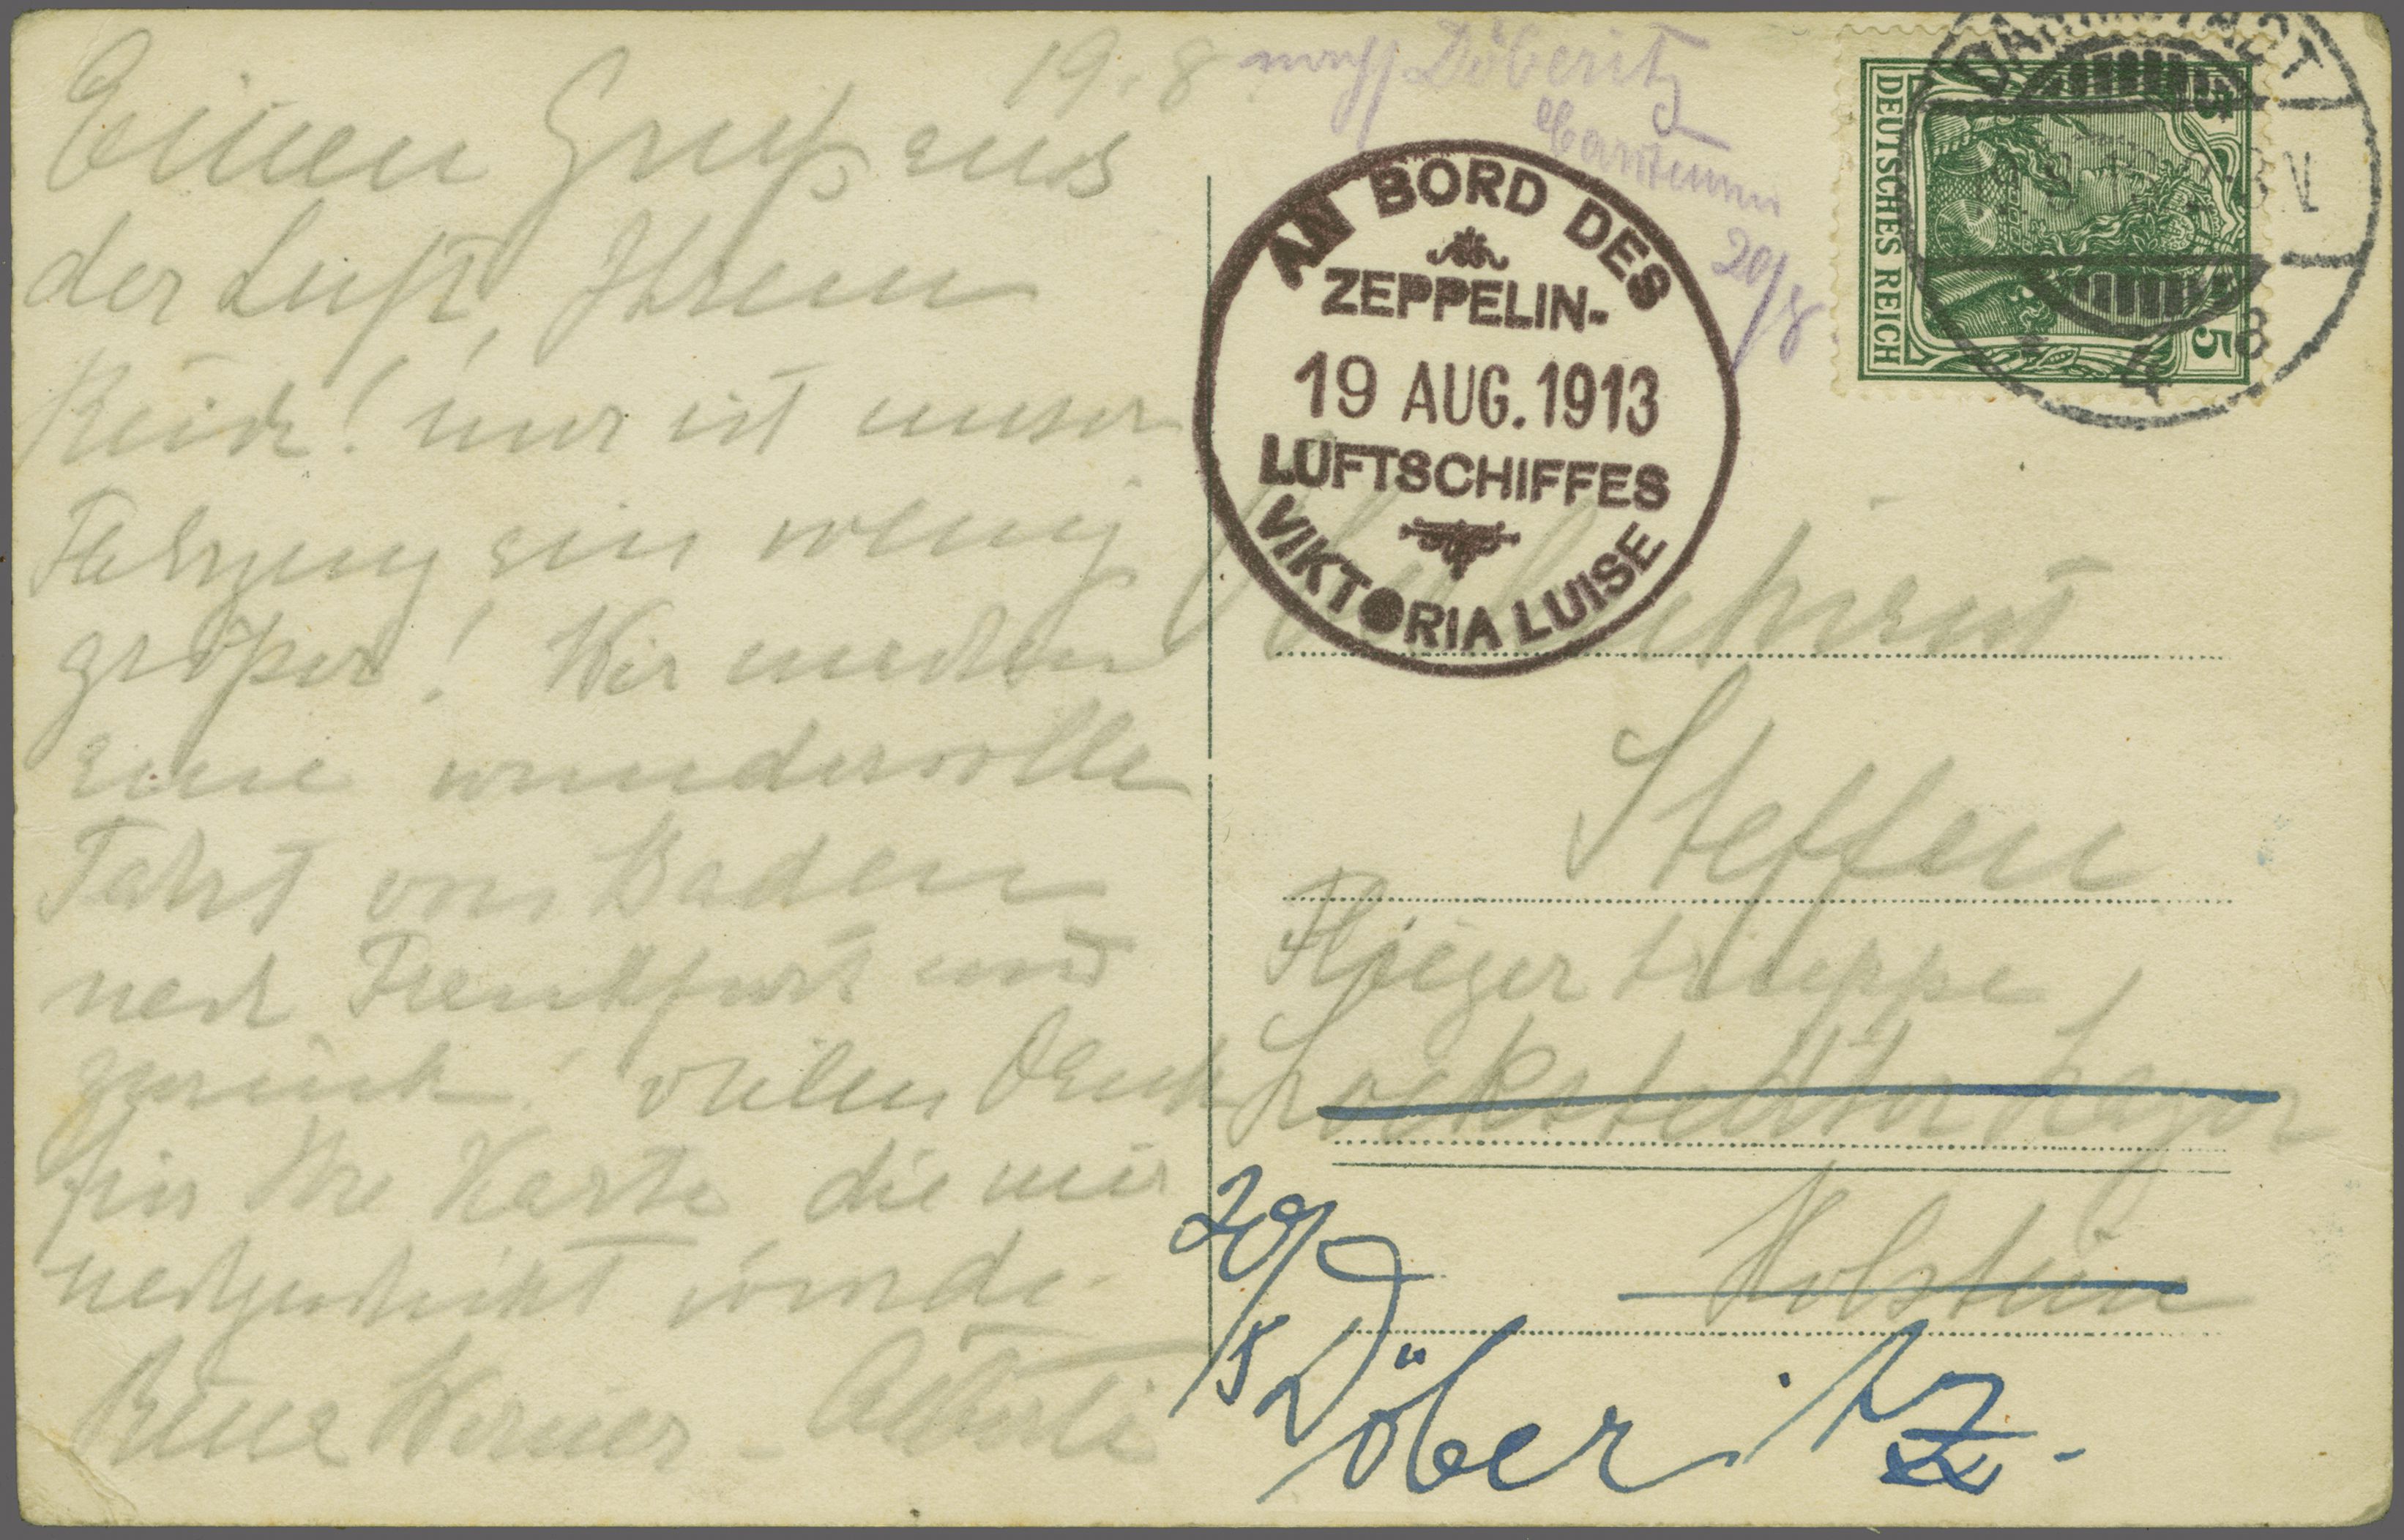 19.8
Einen Gruß aus
der Luft, Ihrem
Reich! nur ist unser
Fahrzeug ein wenig
größer! Wir machen
eine wundervolle
Fahrt von Baden
nach Frankfurt und
zurück. Vielen Dank
für Ihre Karte die mir
nachgeschickt wurde.
Werner -
nach Döberitz
20/8
AN BORD DES
ZEPPELIN-
19 AUG. 1913
LUFTSCHIFFES
VIKTORIA LUISE
DEUTSCHES REICH
5
5
DARMSTADT
8 V
4
Steffen
Fliegertruppe,
Lockstedter Lager
Holstein
Döberitz.